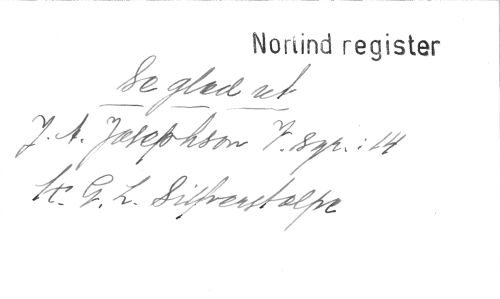 Norlind register
Se glad ut
J. A. Josephson V. sgr.: 14
H. G. L. Silfverstolpe